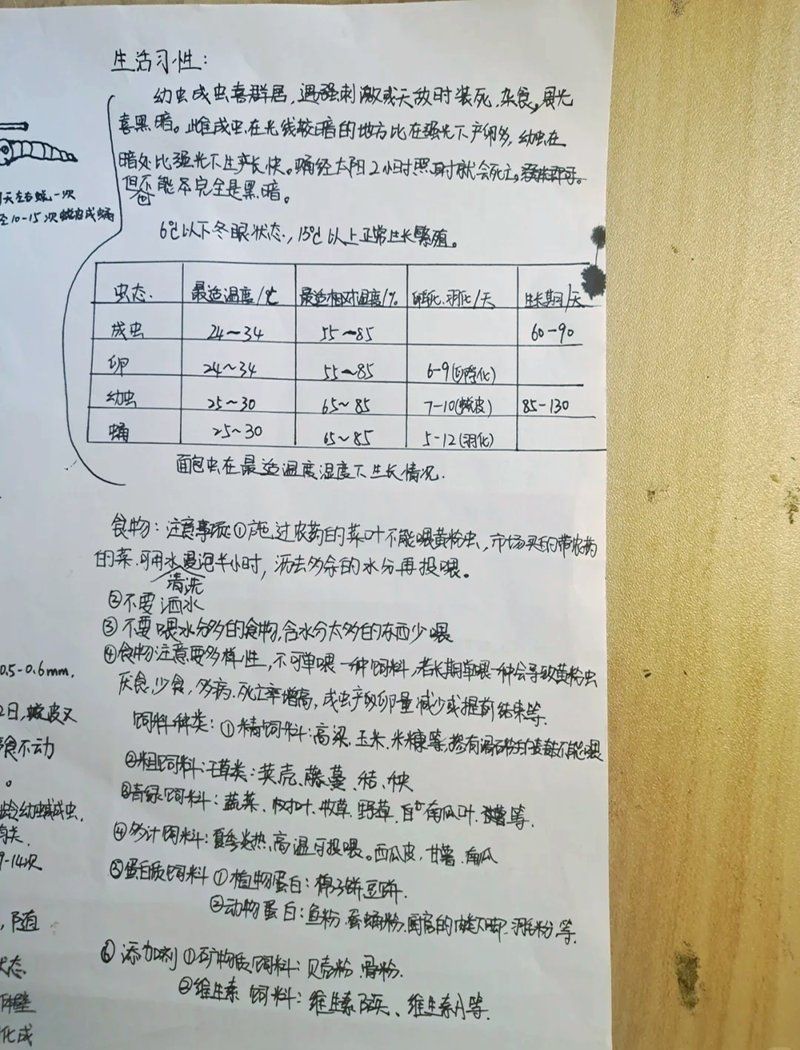 生活习性:
幼虫成虫喜群居,遇强刺激或天敌时装死,杂食,
喜黑暗。雌成虫在光线较暗的地方比在强光下产卵多,幼虫在
暗处比强光下生长快。蛹经太阳2小时照射就会死亡。
但不能完全是黑暗。
6℃以下冬眠状态,15℃以上正常生长繁殖。
虫态 最适温度/℃ 最适相对湿度/% 孵化、羽化/天 生长期/天
成虫 24~34 55~85 60-90
卵 24~34 55~85 6-9(孵化)
幼虫 25~30 65~85 7-10(蜕皮) 85-130
蛹 25~30 65~85 5-12(羽化)
面包虫在最适温度湿度下生长情况.
食物:注意事项:①施过农药的菜叶不能喂黄粉虫,市场买的带农药
的菜.可用水浸泡半小时,沥去多余的水分再投喂。
清洗
②不要洒水
③不要喂水分多的食物,含水分太多的东西少喂
④食物注意要多样性,不可单喂一种饲料,若长期单喂一种会导致黄粉虫
厌食,少食,多病,死亡率增高,成虫产卵量减少或提前结束等.
饲料种类:①精饲料:高粱、玉米、米糠等,不能喂
②粗饲料:干草类:荚壳、藤蔓、秸、秧
③青绿饲料:蔬菜、树叶、牧草、野草、南瓜叶、甘薯等.
④多汁饲料:夏季炎热,高温可投喂。西瓜皮,甘薯.南瓜
⑤蛋白质饲料①植物蛋白:棉子饼.豆饼.
②动物蛋白:鱼粉.蚕蛹粉.厨房的肉类下脚.羽毛粉.等.
⑥添加剂①矿物质饲料:贝壳粉.骨粉.
②维生素饲料:维生素B、维生素A等.
天左右蜕一次
10-15次蜕皮成蛹
0.5-0.6mm.
2日,蜕皮又
食不动
龄幼蛹成虫.
9-14次
,随
状态
化成